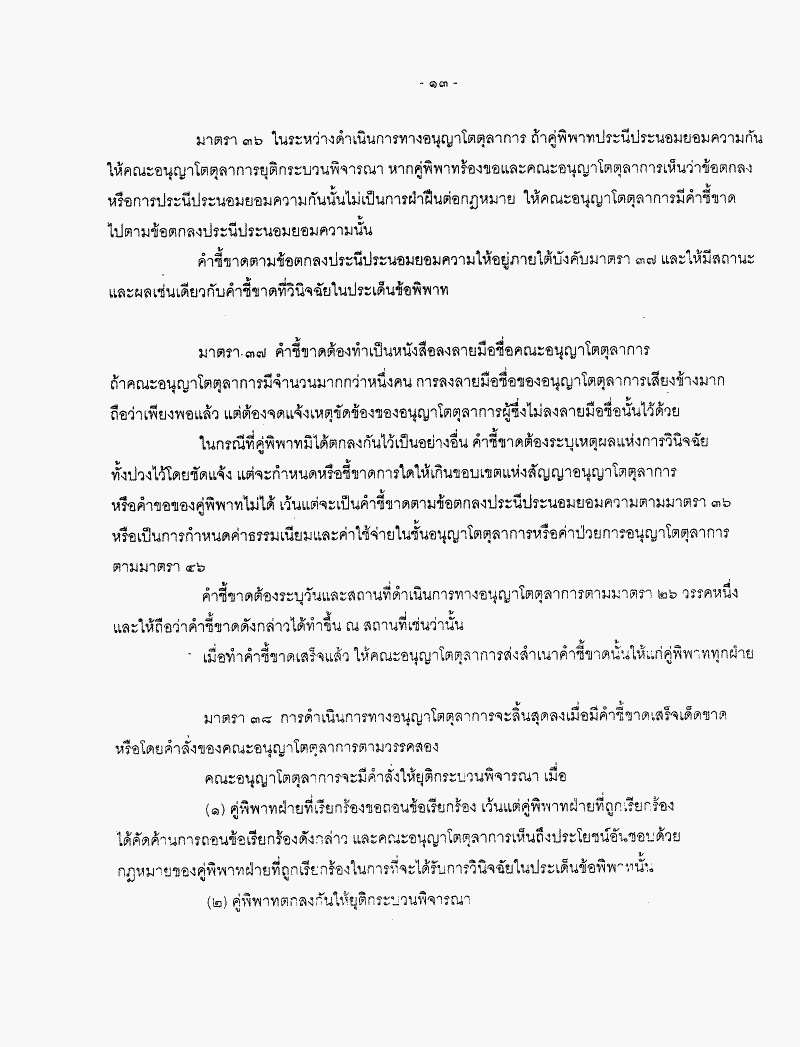 - ๑๓ -
มาตรา ๓๖ ในระหว่างดำเนินการทางอนุญาโตตุลาการ ถ้าคู่พิพาทประนีประนอมยอมความกัน
ให้คณะอนุญาโตตุลาการยุติกระบวนพิจารณา หากคู่พิพาทร้องขอและคณะอนุญาโตตุลาการเห็นว่าข้อตกลง
หรือการประนีประนอมยอมความกันนั้นไม่เป็นการฝ่าฝืนต่อกฎหมาย ให้คณะอนุญาโตตุลาการมีคำชี้ขาด
ไปตามข้อตกลงประนีประนอมยอมความนั้น
คำชี้ขาดตามข้อตกลงประนีประนอมยอมความให้อยู่ภายใต้บังคับมาตรา ๓๗ และให้มีสถานะ
และผลเช่นเดียวกับคำชี้ขาดที่วินิจฉัยในประเด็นข้อพิพาท
มาตรา ๓๗ คำชี้ขาดต้องทำเป็นหนังสือลงลายมือชื่อคณะอนุญาโตตุลาการ
ถ้าคณะอนุญาโตตุลาการมีจำนวนมากกว่าหนึ่งคน การลงลายมือชื่อของอนุญาโตตุลาการเสียงข้างมาก
ถือว่าเพียงพอแล้ว แต่ต้องจดแจ้งเหตุขัดข้องของอนุญาโตตุลาการผู้ซึ่งไม่ลงลายมือชื่อนั้นไว้ด้วย
ในกรณีที่คู่พิพาทมิได้ตกลงกันไว้เป็นอย่างอื่น คำชี้ขาดต้องระบุเหตุผลแห่งการวินิจฉัย
ทั้งปวงไว้โดยชัดแจ้ง แต่จะกำหนดหรือชี้ขาดการใดให้เกินขอบเขตแห่งสัญญาอนุญาโตตุลาการ
หรือคำขอของคู่พิพาทไม่ได้ เว้นแต่จะเป็นคำชี้ขาดตามข้อตกลงประนีประนอมยอมความตามมาตรา ๓๖
หรือเป็นการกำหนดค่าธรรมเนียมและค่าใช้จ่ายในชั้นอนุญาโตตุลาการหรือค่าป่วยการอนุญาโตตุลาการ
ตามมาตรา ๔๖
คำชี้ขาดต้องระบุวันและสถานที่ดำเนินการทางอนุญาโตตุลาการตามมาตรา ๒๖ วรรคหนึ่ง
และให้ถือว่าคำชี้ขาดดังกล่าวได้ทำขึ้น ณ สถานที่เช่นว่านั้น
เมื่อทำคำชี้ขาดเสร็จแล้ว ให้คณะอนุญาโตตุลาการส่งสำเนาคำชี้ขาดนั้นให้แก่คู่พิพาททุกฝ่าย
มาตรา ๓๘ การดำเนินการทางอนุญาโตตุลาการจะสิ้นสุดลงเมื่อมีคำชี้ขาดเสร็จเด็ดขาด
หรือโดยคำสั่งของคณะอนุญาโตตุลาการตามวรรคสอง
คณะอนุญาโตตุลาการจะมีคำสั่งให้ยุติกระบวนพิจารณา เมื่อ
(๑) คู่พิพาทฝ่ายที่เรียกร้องขอถอนข้อเรียกร้อง เว้นแต่คู่พิพาทฝ่ายที่ถูกเรียกร้อง
ได้คัดค้านการถอนข้อเรียกร้องดังกล่าว และคณะอนุญาโตตุลาการเห็นถึงประโยชน์อันชอบด้วย
กฎหมายของคู่พิพาทฝ่ายที่ถูกเรียกร้องในการที่จะได้รับการวินิจฉัยในประเด็นข้อพิพาทนั้น
(๒) คู่พิพาทตกลงกันให้ยุติกระบวนพิจารณา